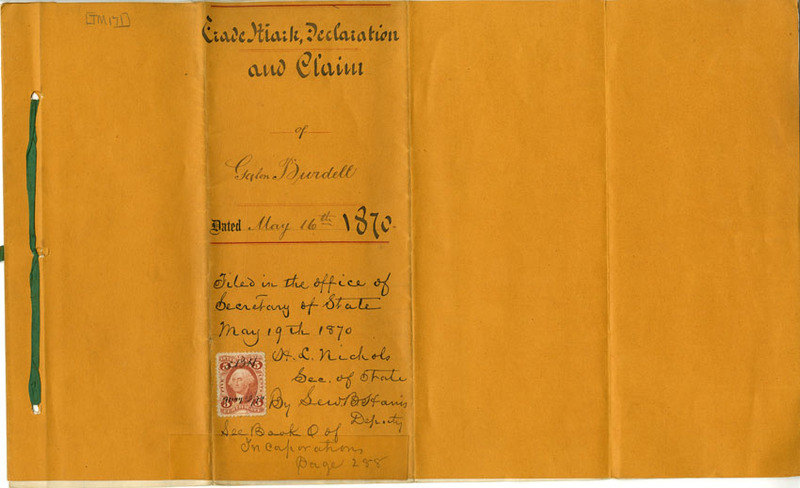 [TM 171]
Trade Mark, Declaration
and Claim
of
Galen Burdell
Dated May 16th 1870.
Filed in the office of
Secretary of State
May 19th 1870
H. L. Nichols
Sec. of State
By Lew B Harris
Deputy
See Book O of
Incoporations
Page 288